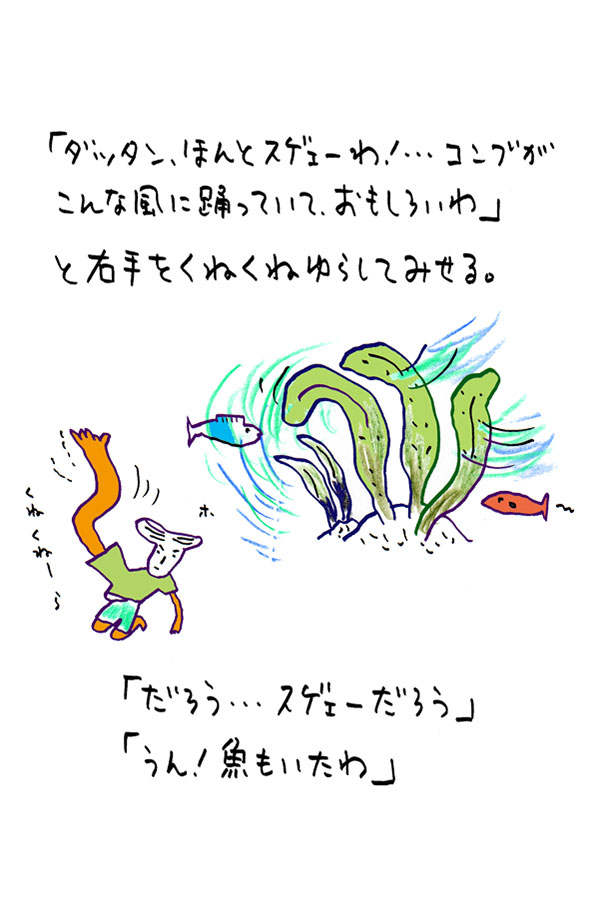 「ダッタン、ほんとスゲェーわ！…コンブが
こんな風に踊っていて、おもしろいわ」
と右手をくねくねゆらしてみせる。
くねくねーら
ホ
「だろう…スゲェーだろう」
「うん！魚もいたわ」